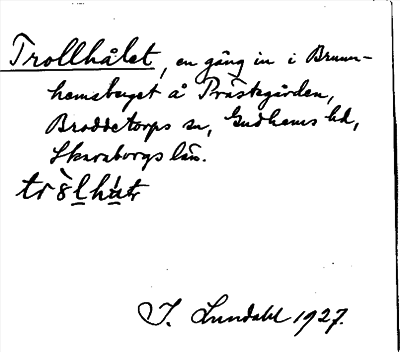 Trollhålet, en gång in i Brunn-
hemsberget å Prästgården,
Broddetorps sn, Gudhems hd,
Skaraborgs län.
J. Lundahl 1927.